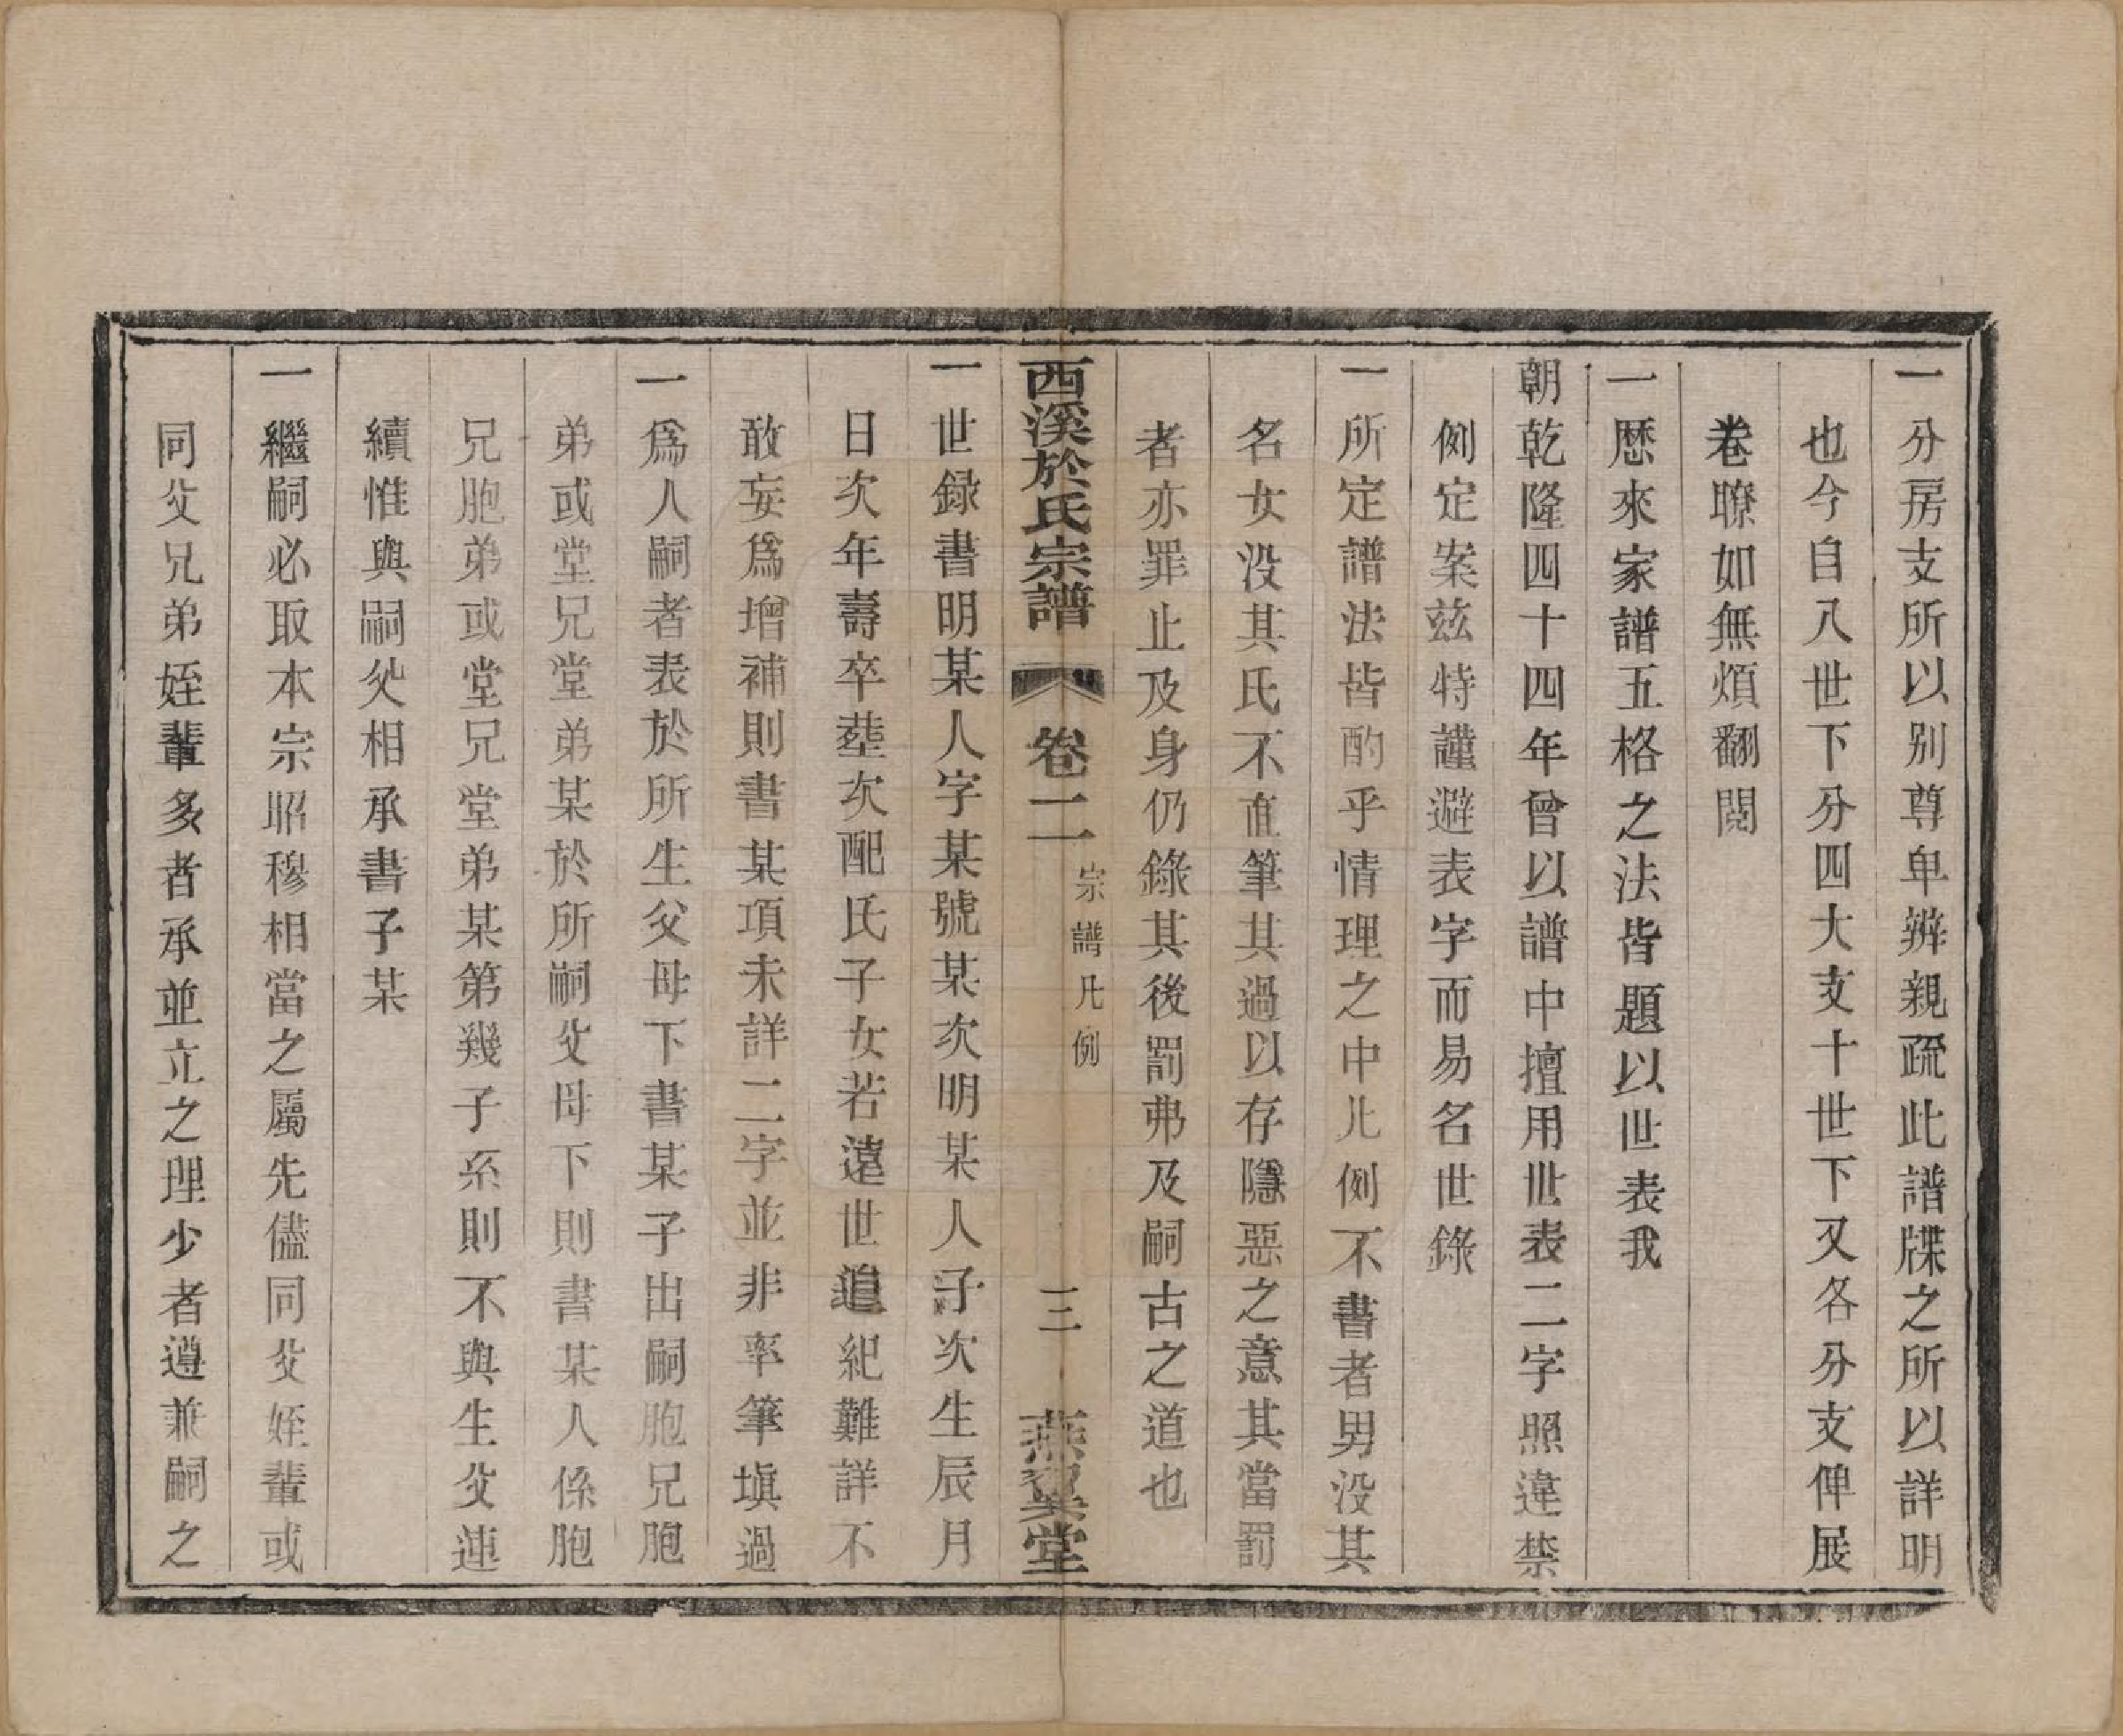 一分房支所以别尊卑辨親疏此譜牒之所以詳明
也今自八世下分四大支十世下又各分支俾展
卷瞭如無煩翻閱
一歷來家譜五格之法皆題以世表我
朝乾隆四十四年曾以譜中擅用世表二字照違禁
例定案兹特謹避表字而易名世錄
一所定譜法皆酌乎情理之中凡例不書者男没其
名女没其氏不直筆其過以存隱惡之意其當罰
者亦罪止及身仍錄其後罰弗及嗣古之道也
西溪於氏宗譜 卷二 宗譜凡例 三 燕翼堂
一世録書明某人字某號某次明某人子次生辰月
日次年壽卒塟次配氏子女若遠世追紀難詳不
敢妄爲增補則書某項未詳二字並非率筆塡過
一爲人嗣者表於所生父母下書某子出嗣胞兄胞
弟或堂兄堂弟某於所嗣父母下則書某人係胞
兄胞弟或堂兄堂弟某第幾子系則不與生父連
續惟與嗣父相承書子某
一繼嗣必取本宗昭穆相當之屬先儘同父姪輩或
同父兄弟姪輩多者承並立之理少者遵兼嗣之